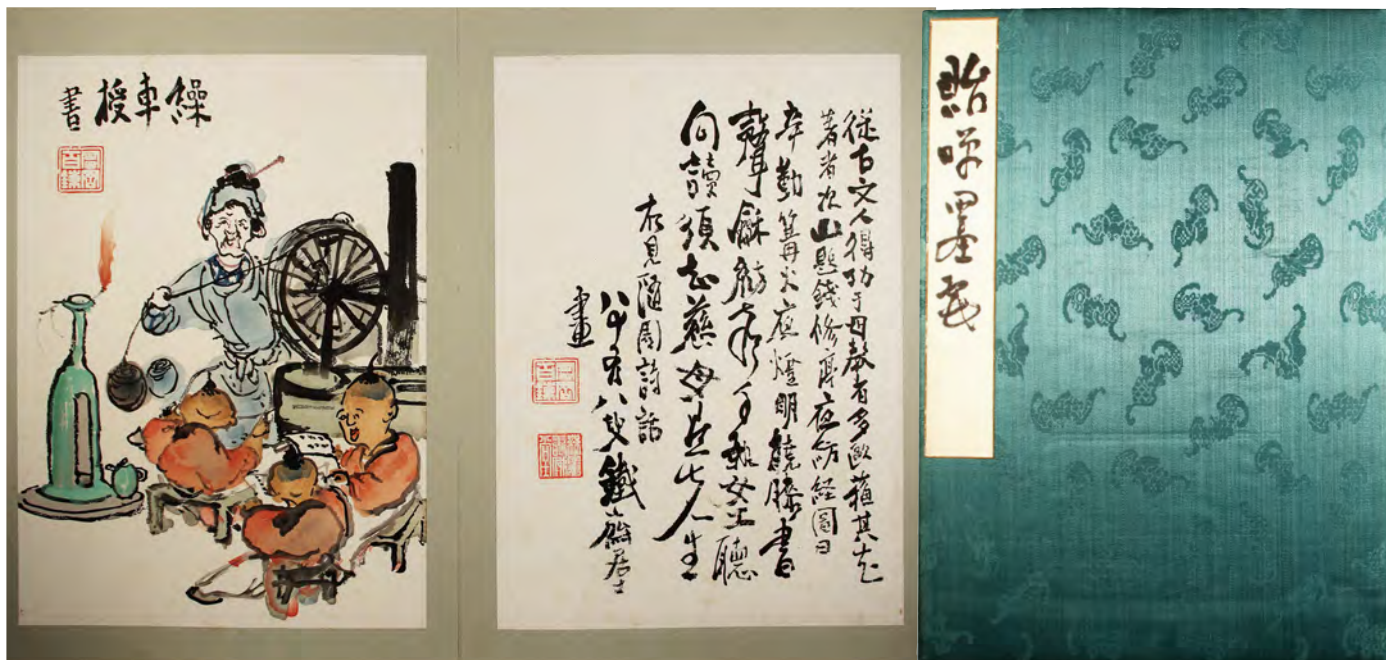 貽咲墨戯
従古文人得功于母教者多歐蘓其尤
著者次山題錢修亭夜紡授經圖曰
辛勤篝火夜燈明繞膝書
聲龢紡聲手執女工聽
句讀須知慈母是先生
右見隨園詩話
八十有八叟鐵齋居士
畫
繰車授書